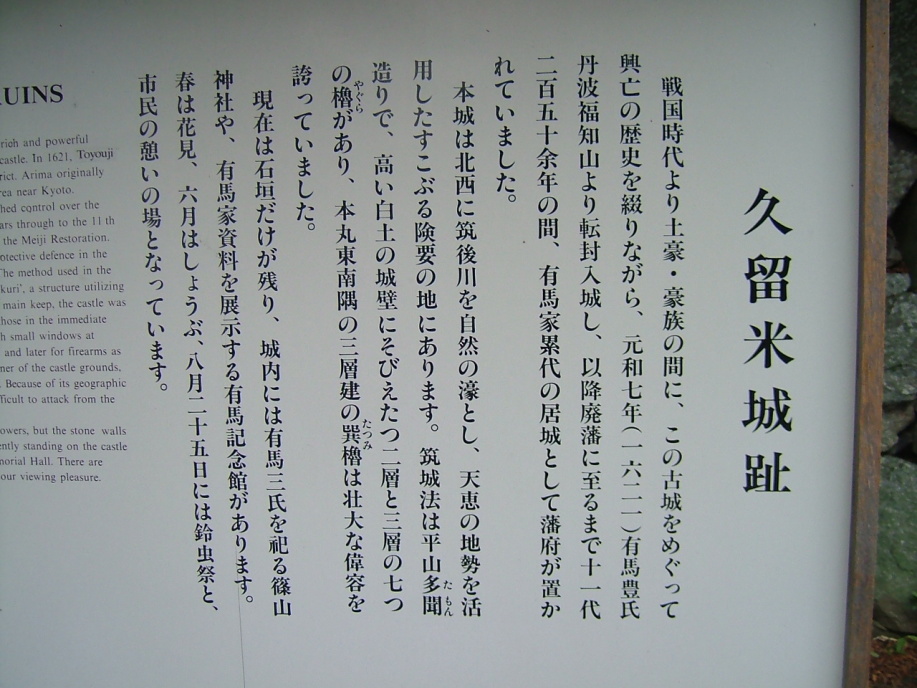 久留米城趾
戦国時代より土豪・豪族の間に、この古城をめぐって
興亡の歴史を綴りながら、元和七年（一六二一）有馬豊氏
丹波福知山より転封入城し、以降廃藩に至るまで十一代
二百五十余年の間、有馬家累代の居城として藩府が置か
れていました。
本城は北西に筑後川を自然の濠とし、天恵の地勢を活
用したすこぶる険要の地にあります。筑城法は平山多聞
たもん
造りで、高い白土の城壁にそびえたつ二層と三層の七つ
の櫓があり、本丸東南隅の三層建の巽櫓は壮大な偉容を
やぐら
たつみ
誇っていました。
現在は石垣だけが残り、城内には有馬三氏を祀る篠山
神社や、有馬家資料を展示する有馬記念館があります。
春は花見、六月はしょうぶ、八月二十五日には鈴虫祭と、
市民の憩いの場となっています。
UINS
rich and powerful
castle. In 1621, Toyouji
rict. Arima originally
rea near Kyoto.
hed control over the
ars through to the 11 th
the Meiji Restoration.
otective defence in the
The method used in the
kuri', a structure utilizing
main keep, the castle was
hose in the immediate
h small windows at
and later for firearms as
ner of the castle grounds,
. Because of its geographic
fficult to attack from the
owers, but the stone walls
ently standing on the castle
morial Hall. There are
our viewing pleasure.